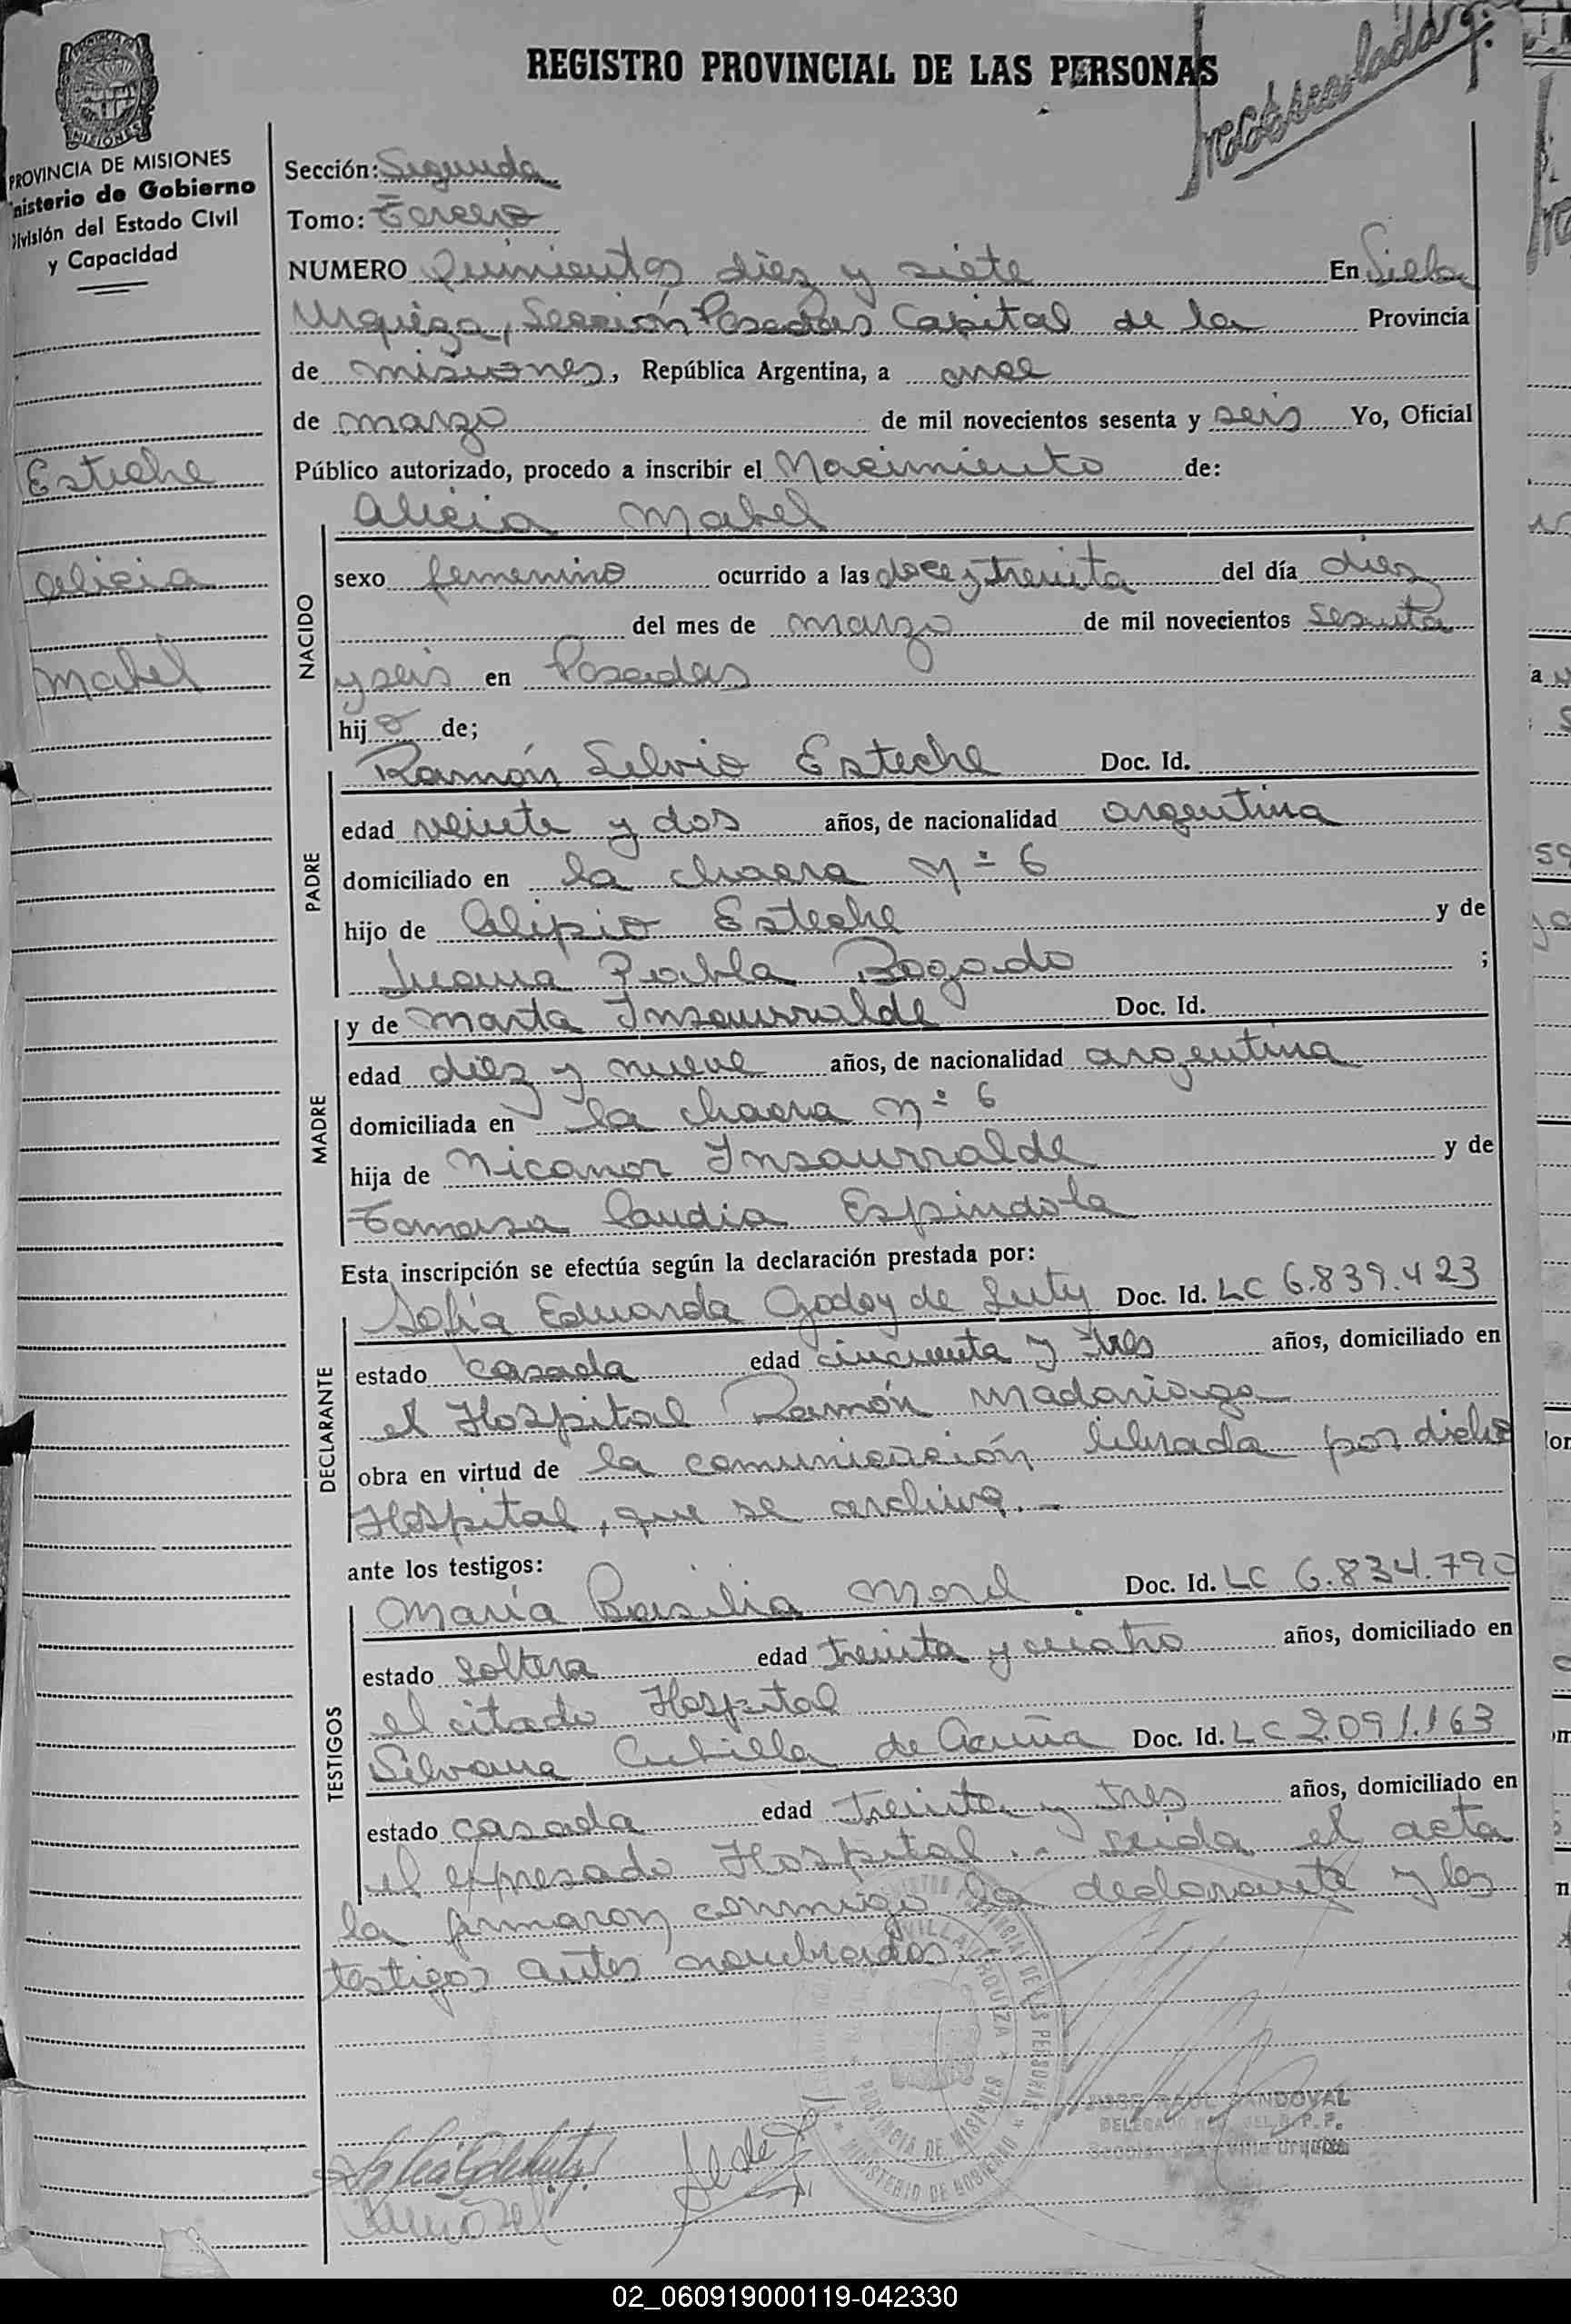 REGISTRO PROVINCIAL DE LAS PERSONAS
MISIONES
PROVINCIA DE MISIONES
nisterio de Gobierno
División del Estado Civil
y Capacidad
Esteche
Alicia
Mabel
Sección: Segunda
Tomo: Tercero
NUMERO Quinientos diez y siete En Villa
Urquiza, Sección Posadas Capital de la Provincia
de misiones, República Argentina, a once
de marzo de mil novecientos sesenta y seis Yo, Oficial
Público autorizado, procedo a inscribir el Nacimiento de:
NACIDO
Alicia Mabel
sexo femenino ocurrido a las doce y treinta del día diez
del mes de marzo de mil novecientos sesenta
y seis en Posadas
hija de;
PADRE
Ramón Silvio Esteche Doc. Id.
edad veinte y dos años, de nacionalidad argentina
domiciliado en la chacra nº 6
hijo de Alipio Esteche y de
Juana Pabla Bogado ;
MADRE
y de Marta Insaurralde Doc. Id.
edad diez y nueve años, de nacionalidad argentina
domiciliada en la chacra nº 6
hija de Nicanor Insaurralde y de
Tomasa Claudia Espindola
Esta inscripción se efectúa según la declaración prestada por:
DECLARANTE
Sofía Eduarda Godoy de Luty Doc. Id. LC 6.839.423
estado casada edad cincuenta y tres años, domiciliado en
el Hospital Ramón Madariaga
obra en virtud de la comunicación librada por dicho
Hospital, que se archiva.-
ante los testigos:
TESTIGOS
María Basilia Morel Doc. Id. LC 6.834.790
estado soltera edad treinta y cuatro años, domiciliado en
el citado Hospital
Silvana Cubilla de Acuña Doc. Id. LC 2.091.163
estado casada edad treinta y tres años, domiciliado en
el expresado Hospital.- Leida el acta
la firmaron conmigo la declarante y los
testigos antes nombrados.
VILLA URQUIZA
PROVINCIA DE MISIONES
MINISTERIO DE GOBIERNO
JOSE RAUL SANDOVAL
02_060919000119-042330